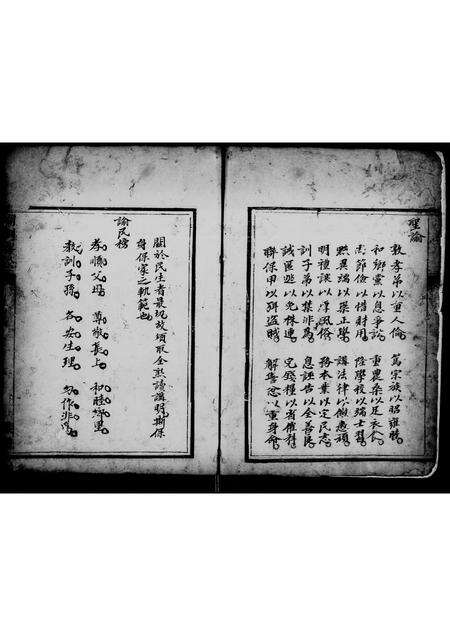 聖諭
敦孝弟以重人倫 篤宗族以昭雍睦
和鄉黨以息爭訟 重農桑以足衣食
尚節儉以惜財用 隆學校以端士習
黜異端以崇正學 講法律以儆愚頑
明禮讓以厚風俗 務本業以定民志
訓子弟以禁非為 息誣告以全善良
誡匿逃以免株連 完錢糧以省催科
聯保甲以弭盜賊 解讐忿以重身命
關於民生者最切故須取全熟讀講明斯保
身保家之軌範也
諭民榜
孝順父母 尊敬長上 和睦鄉里
教訓子孫 各安生理 勿作非為